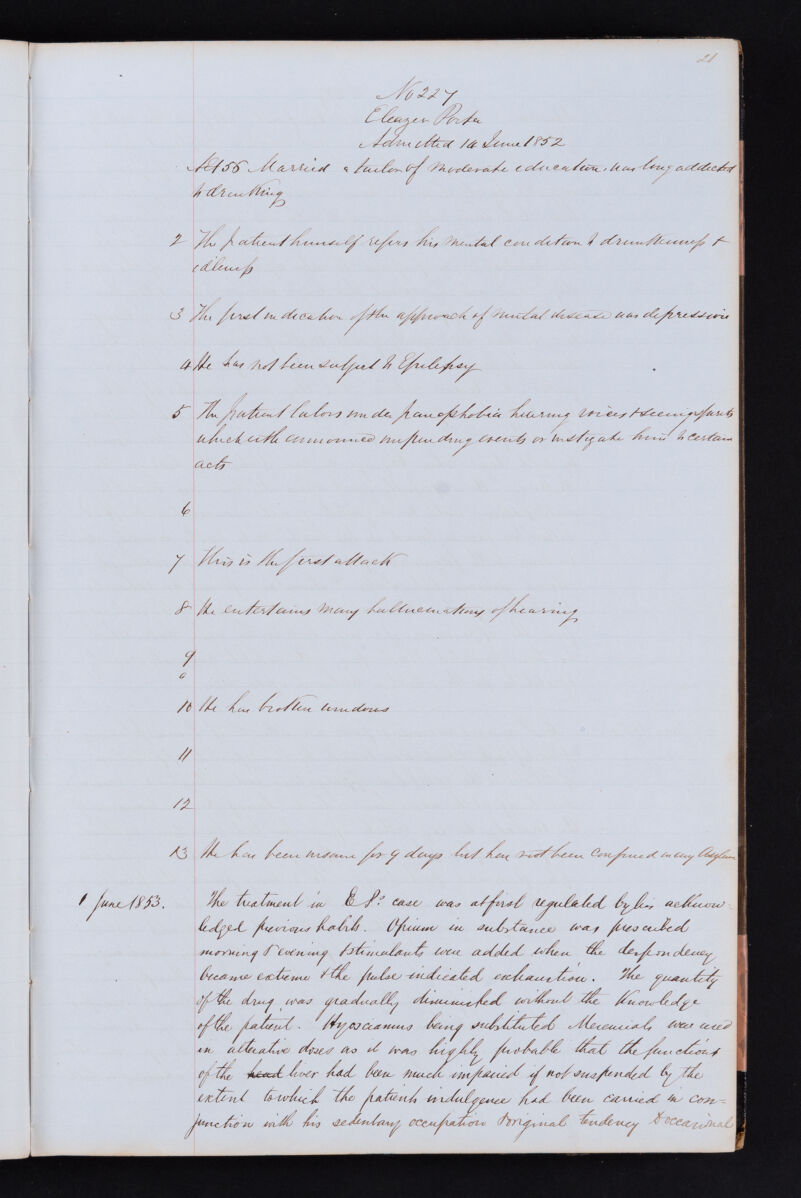 21
No 227
Eleazer Porter
Admitted 14 June 1852
Aet 56 Married a tailor of moderate education was long addicted
to drinking
2 The patient himself refers his mental condition to drunkenness &
idleness
3 The first indication of the approach of mental disease was depression
4 He has not been subject to Epilepsy
5 The patient labors under panophobia hearing voices & seeing
which either announced impending events or instigate him to certain
acts
6
7 This is the first attack
8 He entertains many hallucinations of hearing
9
10 He has broken windows
11
12
13 He has been insane for 9 days but has not been confined in any Asylum
1 June 1853. The treatment in E P's case was at first regulated by his acknow-
ledged previous habits. Opium in substance was prescribed
morning & evening & stimulants were added when the despondency
became extreme & the pulse indicated exhaustion. The quantity
of the drug was gradually diminished without the Knowledge
of the patient. Hyosciamus being substituted Mercurials were used
in alterative doses as it was highly probable that the functions
of the head liver had been much impaired if not suspended by the
extent to which the patients indulgence had been carried in con=
junction with his sedentary occupation & original tendency & occasional